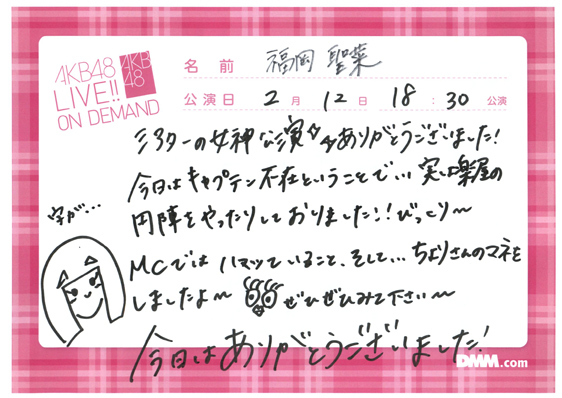 AKB48
LIVE!!
ON DEMAND
AKB
48
名前 福岡 聖菜
公演日 2月 12日 18:30公演
シアターの女神公演ありがとうございました!
今日はキャプテン不在ということで… 実は楽屋の
円陣をやったりしておりました!!びっくり〜
字が…
MCでは ハマッていること、そして… ちよりさんのマネを
しましたよ〜 ぜひぜひみて下さい〜
今日はありがとうございました!
DMM.com